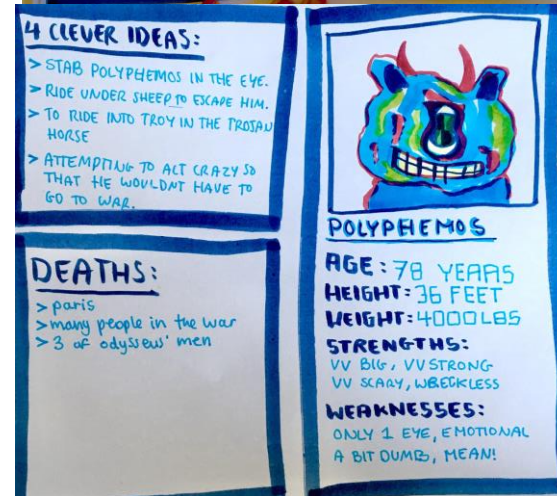 4 CLEVER IDEAS:
> STAB POLYPHEMOS IN THE EYE.
> RIDE UNDER SHEEP TO ESCAPE HIM.
> TO RIDE INTO TROY IN THE TROJAN
HORSE
> ATTEMPTING TO ACT CRAZY SO
THAT HE WOULDNT HAVE TO
GO TO WAR.
DEATHS:
> paris
> many people in the war
> 3 of odysseus' men
POLYPHEMOS
AGE: 78 YEARS
HEIGHT: 36 FEET
WEIGHT: 4000LBS
STRENGTHS:
VV BIG, VV STRONG
VV SCARY, WRECKLESS
WEAKNESSES:
ONLY 1 EYE, EMOTIONAL
A BIT DUMB, MEAN!